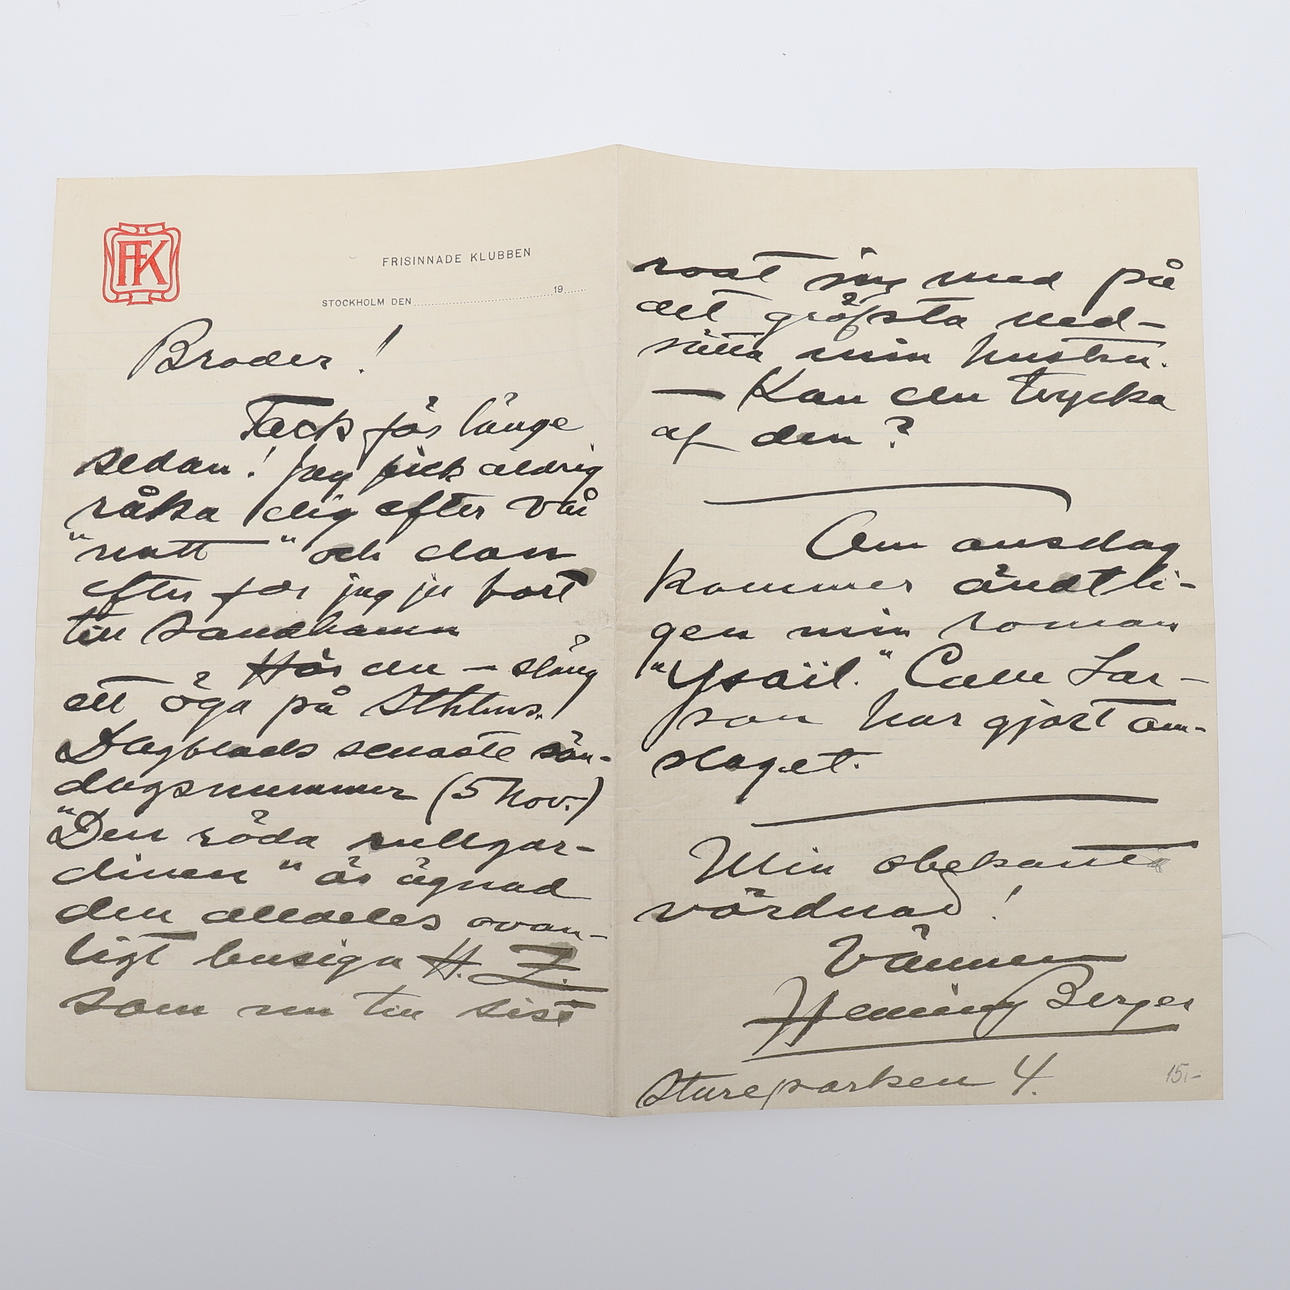 FK
FRISINNADE KLUBBEN
STOCKHOLM DEN 19
Broder!
Tack för länge
sedan! Jag fick aldrig
råka dig efter vår
"natt" och dan
efter for jag ju bort
till Sandhamn
Hör du – släng
ett öga på Sthlms
Dagblads senaste sön-
dagsnummer (5 Nov.)
"Den röda rullgar-
dinen" är ägnad
den alldeles ovan-
ligt busiga H. Z.
som nu till sist
roat sig med på
det gröfsta ned-
sätta min hustru.
– Kan du trycka
af den?
Om onsdag
kommer ändtli-
gen min roman
"Ysaïl." Calle Lar-
son har gjort om-
slaget.
Min obekanta
vördnad!
Vännen
Henning Berger
Stureparken 4.
15:-